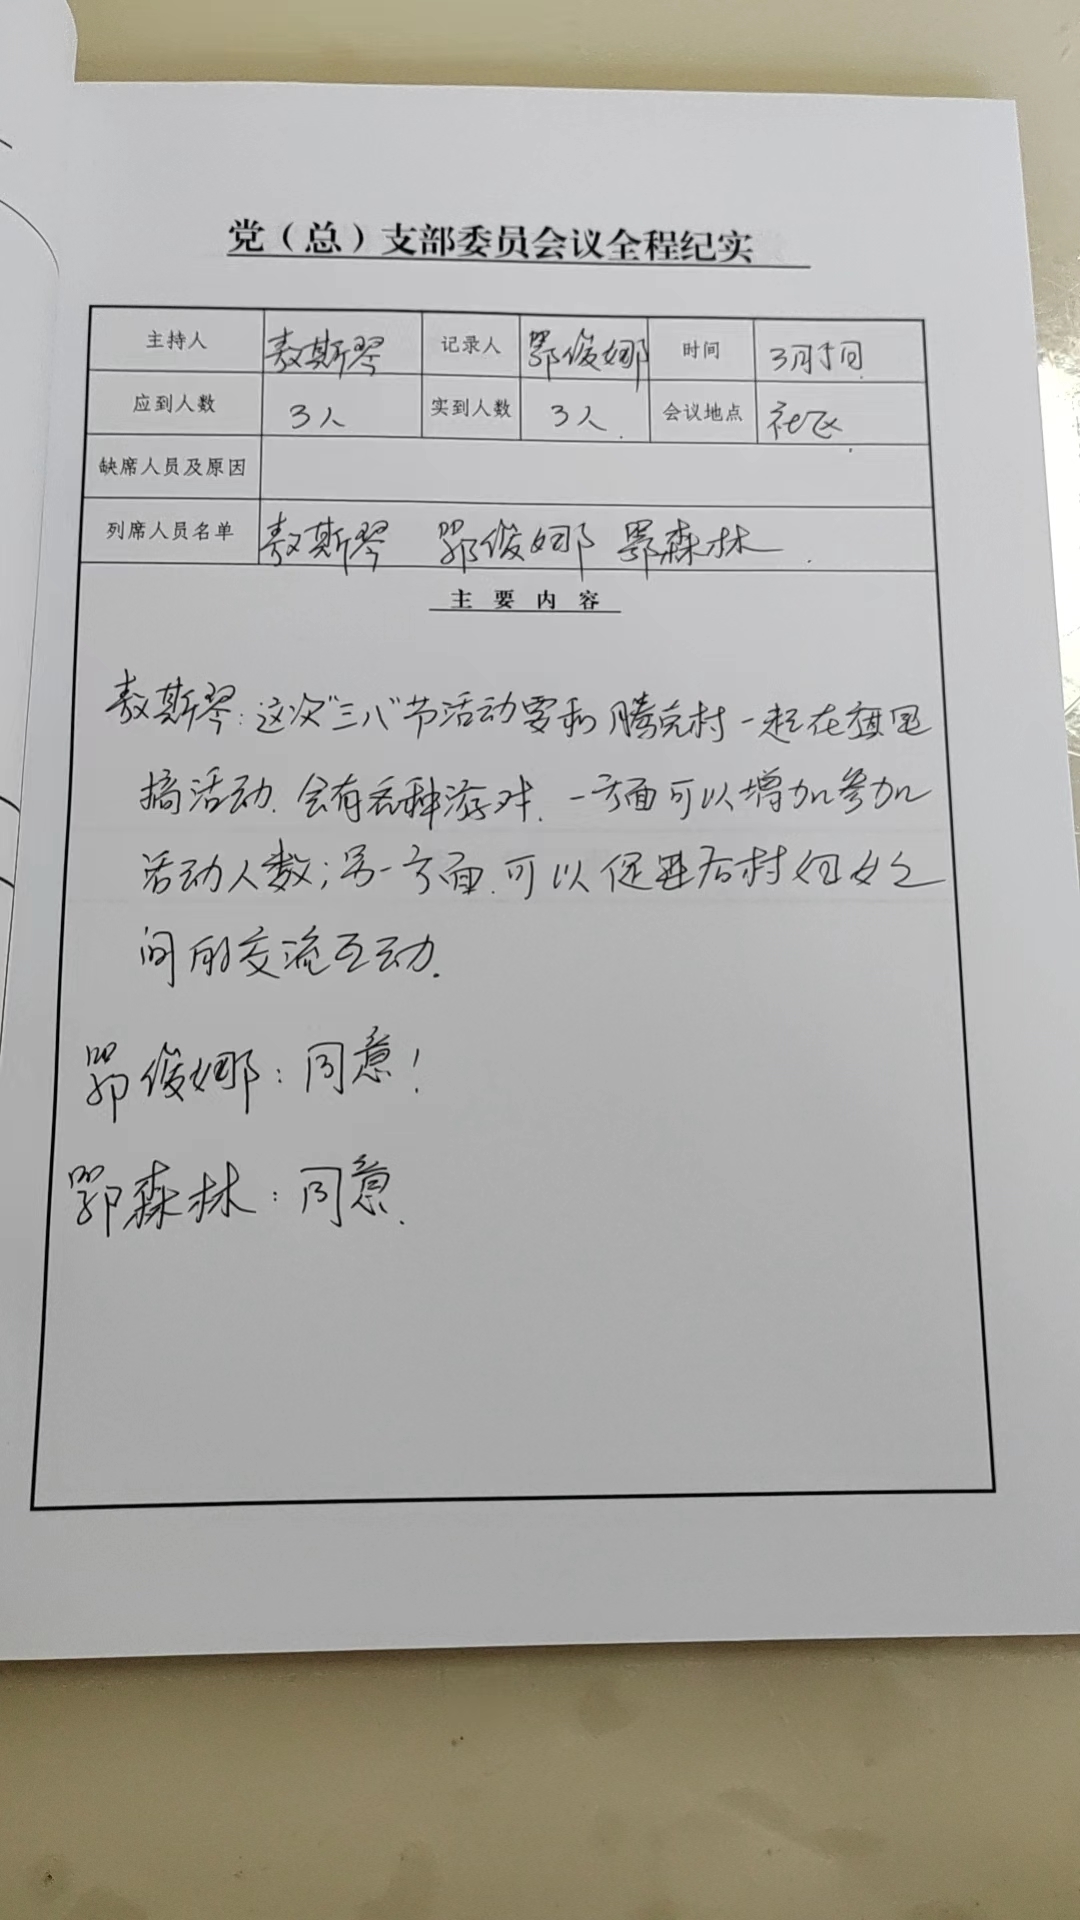 党（总）支部委员会议全程纪实
主持人 敖斯琴 记录人 鄂俊娜 时间 3月
应到人数 3人 实到人数 3人. 会议地点 社区.
缺席人员及原因
列席人员名单 敖斯琴 鄂俊娜 鄂森林.
主要内容
敖斯琴:这次“三八”节活动要和腾克村一起在
搞活动.会有各种游戏.一方面可以增加参加
活动人数;另一方面.可以促进各村妇女之
间的交流互动.
鄂俊娜:同意!
鄂森林:同意.